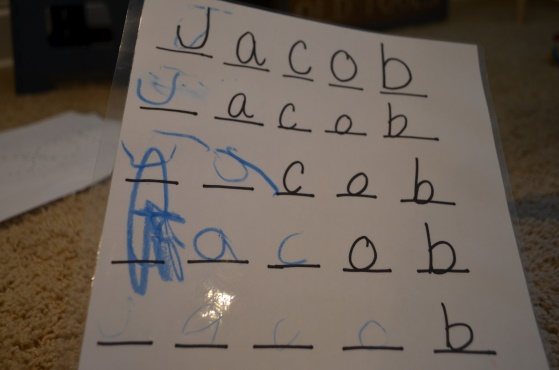 J a c o b
J a c o b
a c o b
a c o b
J a c o b